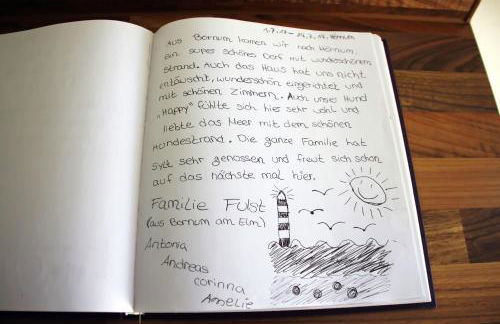 1.7.17 - 14.7.17 Hörnum
Aus Bornum kamen wir nach Hörnum
ein super schönes Dorf mit wunderschönem
Strand. Auch das Haus hat uns nicht
entäuscht, wunderschön eingerichtet und
mit schönen Zimmern. Auch unser Hund
„Happy" fühlte sich hier sehr wohl und
liebte das Meer mit dem schönen
Hundestrand. Die ganze Familie hat
Sylt sehr genossen und freut sich schon
auf das nächste mal hier.
Familie Fulst
(aus Bornum am Elm)
Antonia
Andreas
corinna
Amelie